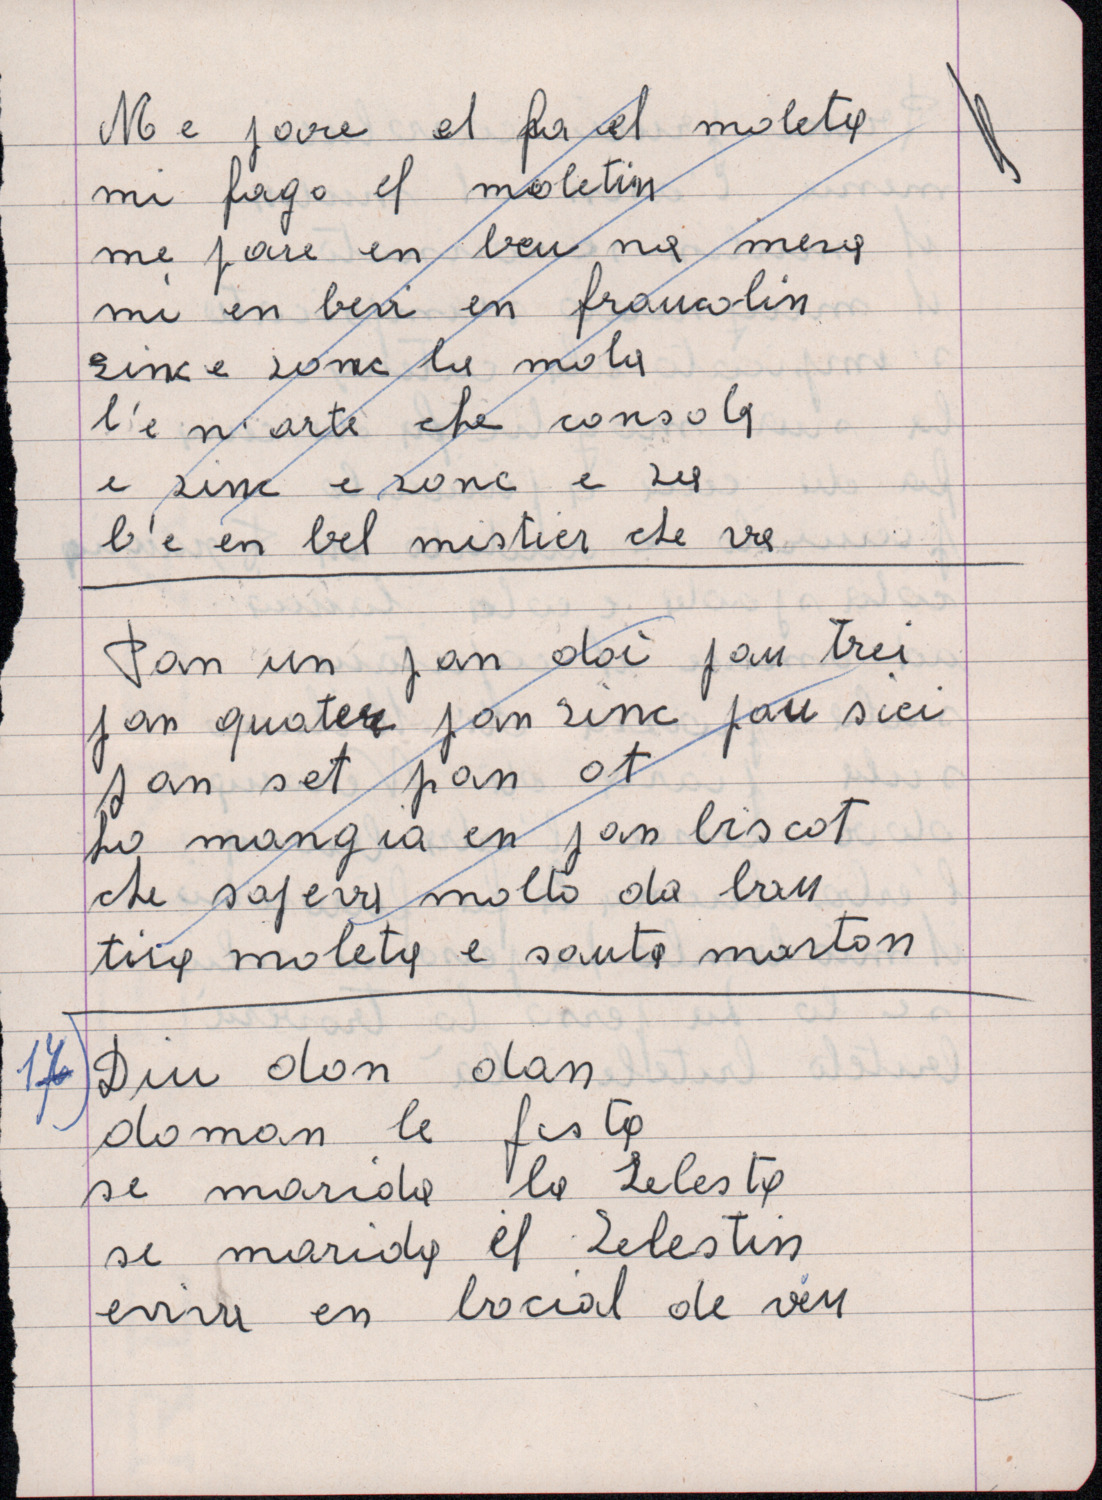 Me pare el fa el moleta
mi fago el moletin
me pare en beu na mesa
mi en bevi en francolin
zinc e zonc la mola
l'e n'arte che consola
e zinc e zonc e za
l'e en bel mistier che va
Pan un pan doi pan trei
pan quater pan zinc pan siei
pan set pan ot
ho mangia en pan biscot
che sapeva molto da bon
tira moleta e santa marton
17) Din don dan
doman le festa
se marida la Zelesta
se marida el Zelestin
eviva en bocial de vin